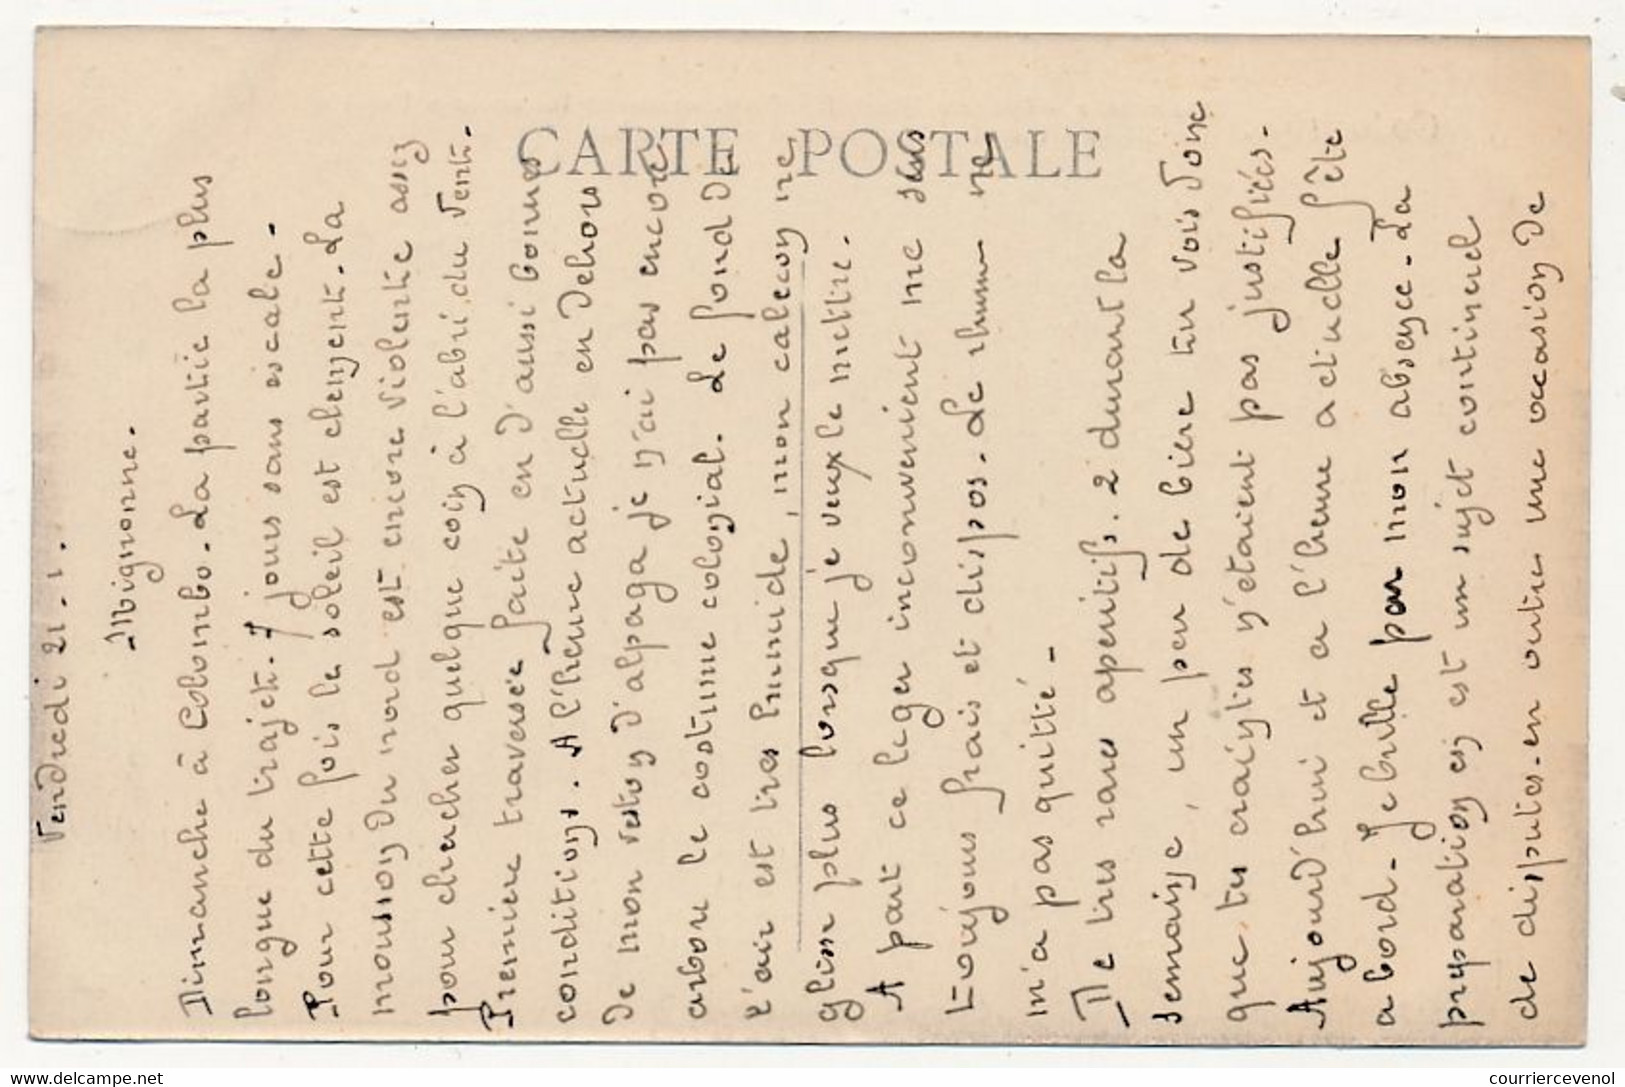 CARTE POSTALE
Vendredi 21.1.
Mignonne.
Dimanche à Colombo. La partie la plus
longue du trajet. 7 jours sans escale.
Pour cette fois le soleil est clement. La
mousson du nord est encore violente assez
pour chercher quelque coin à l'abri du vent.
Premiere traversée faite en d'aussi bonnes
conditions. A l'heure actuelle en dehors
de mon veston d'alpaga je n'ai pas encore
arboré le costume colonial. Le fond de
l'air est tres humide, mon caleçon ne
glisse plus lorsque je veux le mettre.
A part ce leger inconvenient me sens
toujours frais et dispos. Le rhume ne
m'a pas quitté -
De tres rares aperitifs. 2 durant la
semaine, un peu de biere tu vois donc
que tes craintes n'etaient pas justifiées.
Aujourd'hui et a l'heure actuelle fête
a bord - Je brille par mon absence. La
preparation en est un sujet continuel
de disputes. en outre une occasion de
delcampe.net
courriercevenol